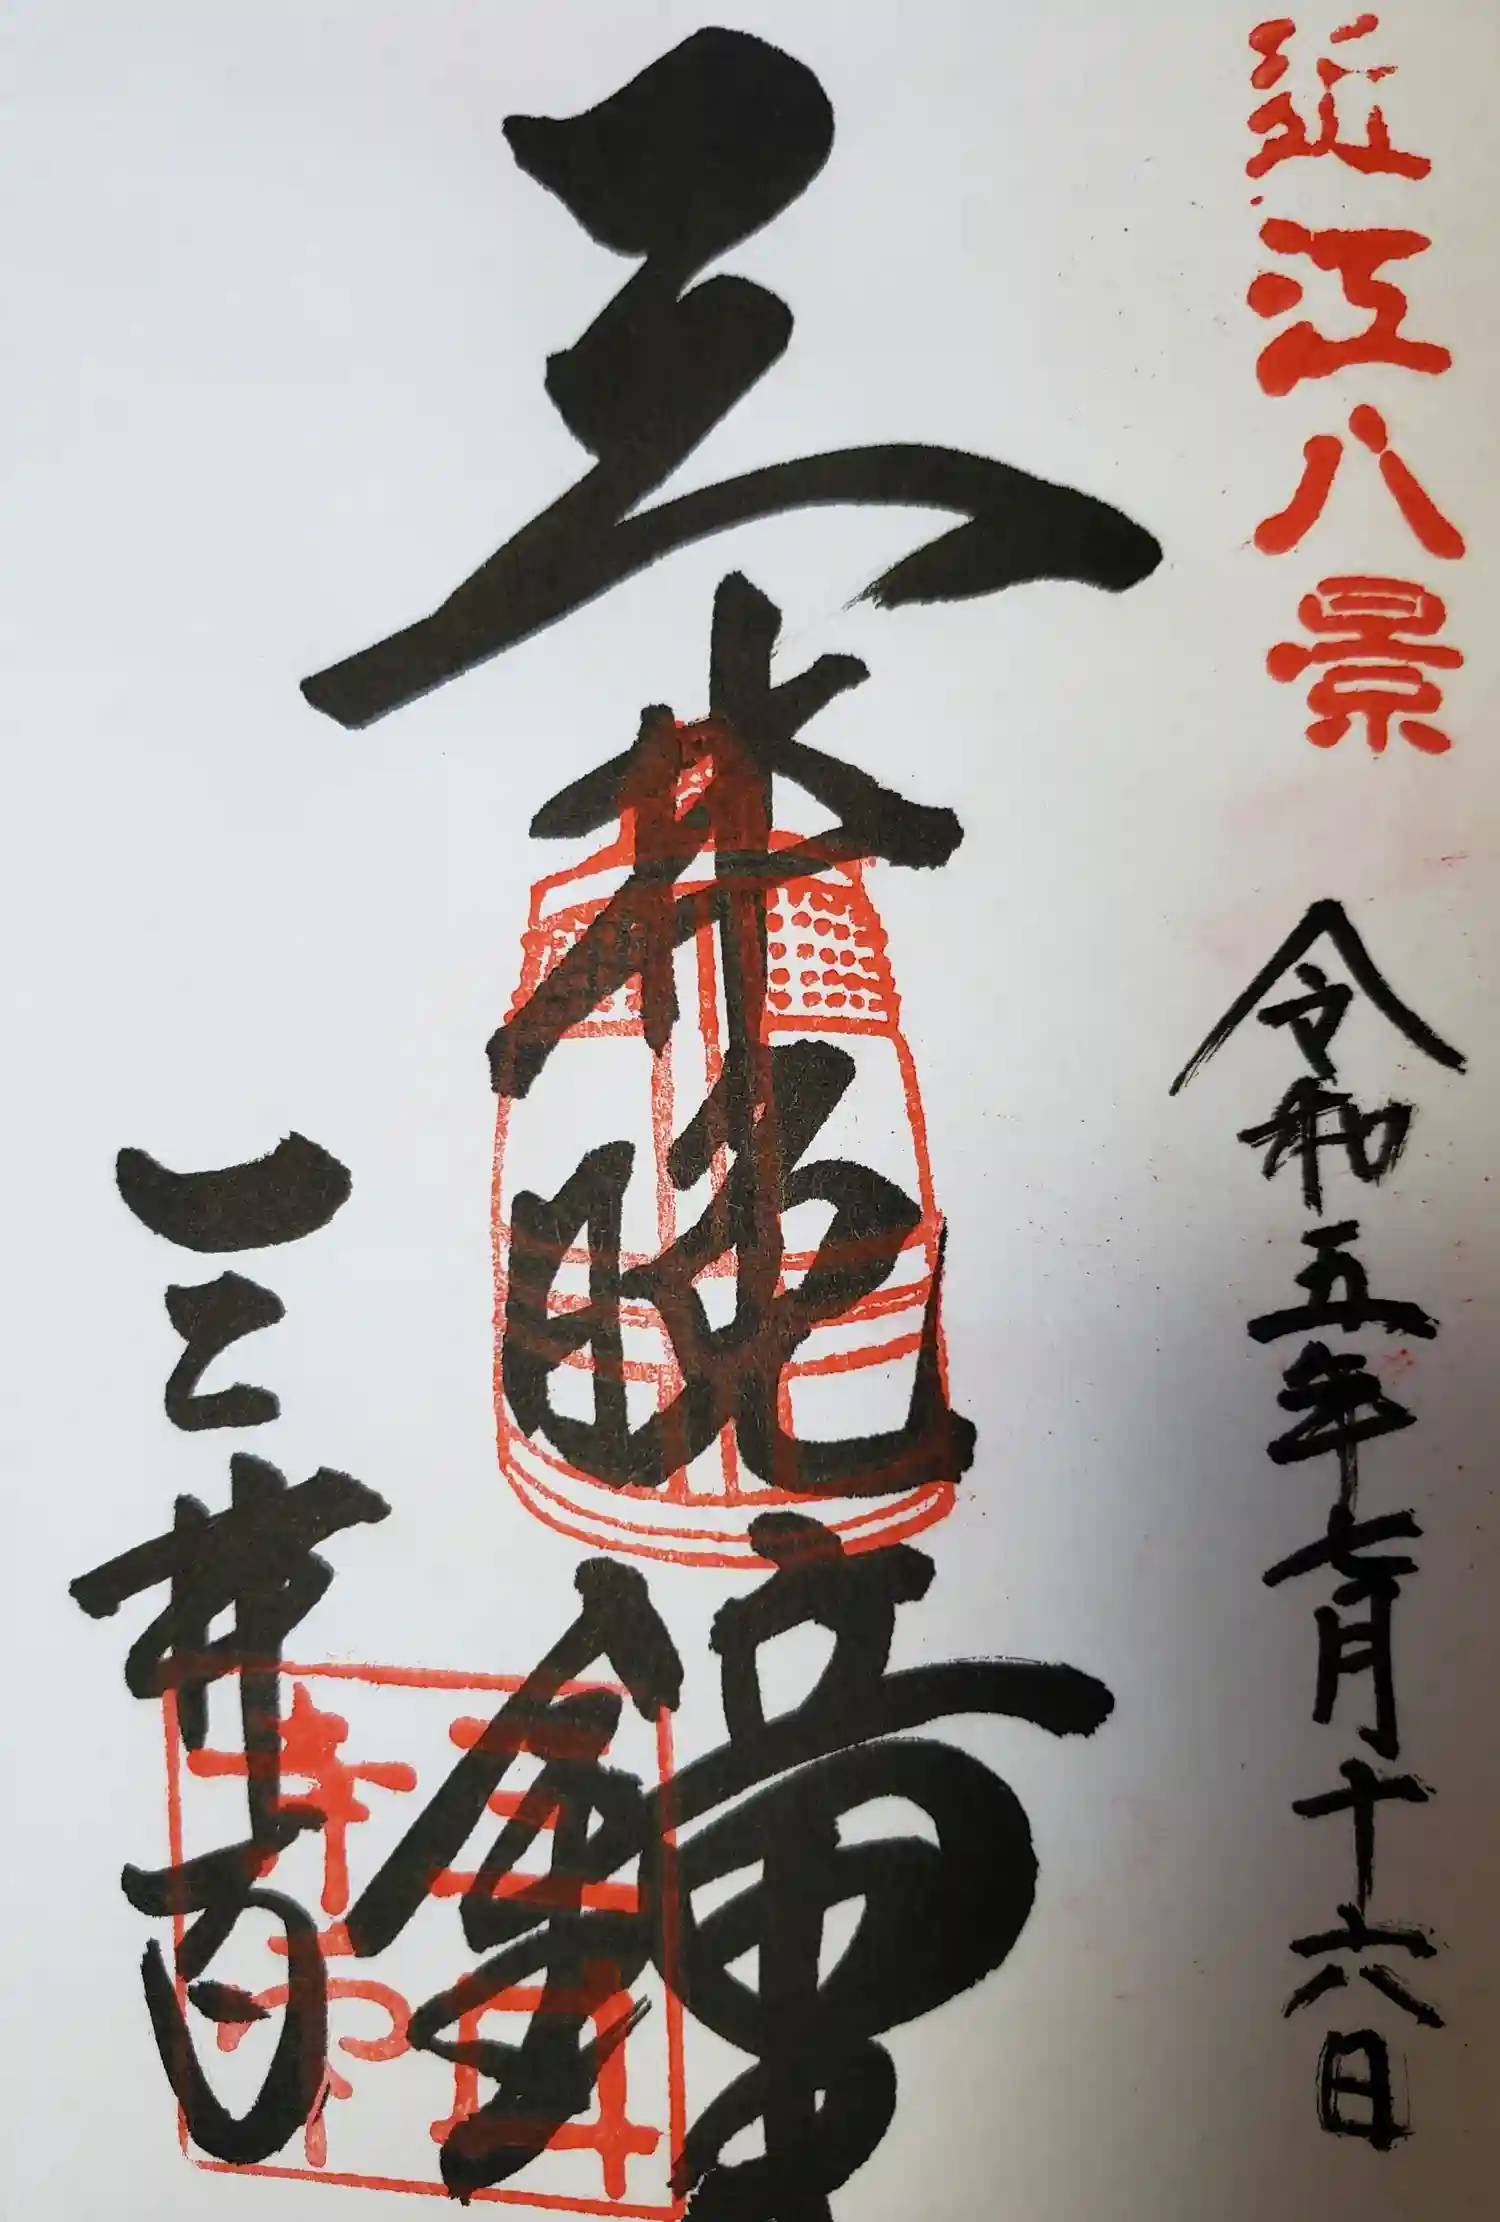 近江八景
令和五年七月十六日
三井晩鐘
三井寺